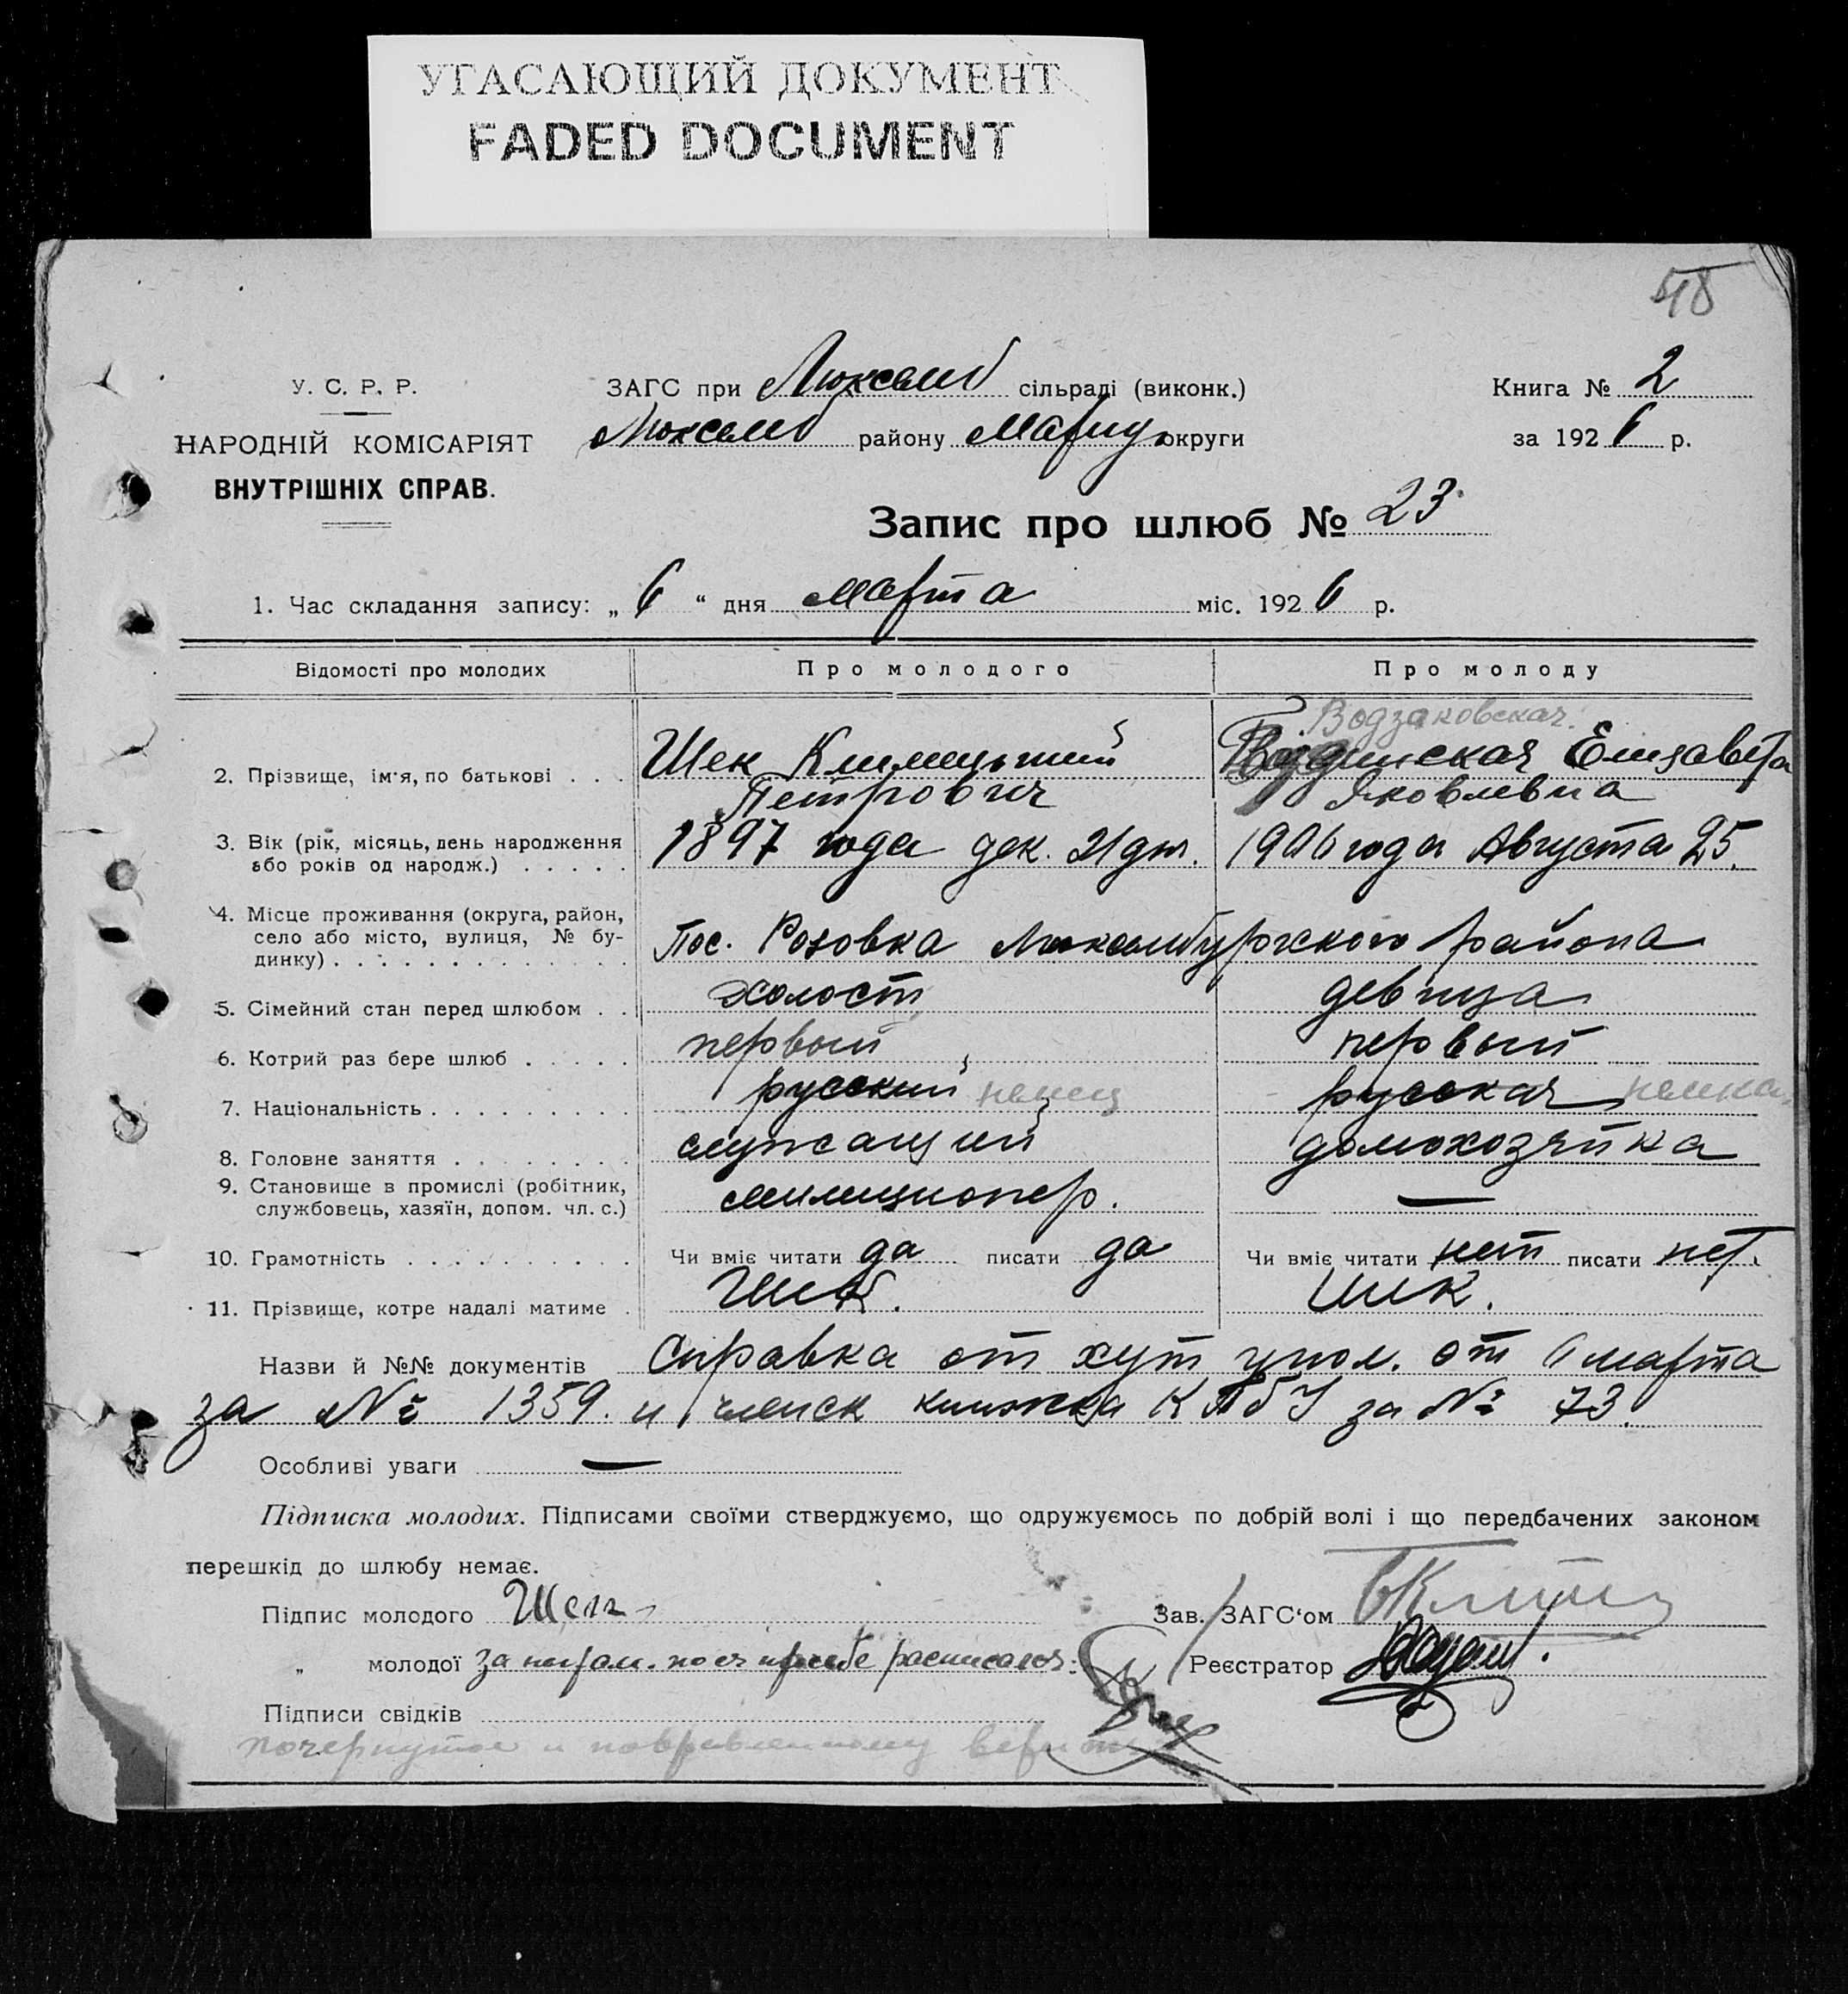 УГАСАЮЩИЙ ДОКУМЕНТ
FADED DOCUMENT
48
У. С. Р. Р.
НАРОДНІЙ КОМІСАРІЯТ
ВНУТРІШНІХ СПРАВ.
ЗАГС при Люксемб сільраді (виконк.)
Люксемб району Мариуп округи
Книга № 2
за 1926 р.
Запис про шлюб № 23
1. Час складання запису: „ 6 “ дня марта міс. 1926 р.
Відомості про молодих Про молодого Про молоду
Водзаковская
2. Прізвище, ім'я, по батькові . . . Шек Елизавета
Петрович Яковлевна
3. Вік (рік, місяць, день народження
або років од народж.) . . . . . 1897 года дек. 21 дня. 1906 года Августа 25.
4. Місце проживання (округа, район,
село або місто, вулиця, № бу-
динку) . . . . . . . . . . . . . Пос. Розовка Люксембургского района
5. Сімейний стан перед шлюбом . . холост девица
6. Котрий раз бере шлюб . . . . . первый первый
7. Національність . . . . . . . . . русский немец русская немка
8. Головне заняття . . . . . . . . служащий домохозяйка
9. Становище в промислі (робітник,
службовець, хазяїн, допом. чл. с.) милиционер. —
10. Грамотність . . . . . . . . . . Чи вміє читати да писати да Чи вміє читати нет писати нет.
11. Прізвище, котре надалі матиме . Шек. Шек.
Назви й №№ документів Справка от хут упол. от 6 марта
за № 1359. и членск книжка КПбУ за № 73.
Особливі уваги —
Підписка молодих. Підписами своїми стверджуємо, що одружуємось по добрій волі і що передбачених законом
перешкід до шлюбу немає.
Підпис молодого Шек Зав. ЗАГС'ом
„ молодої за неграм. по ея просьбе расписался: Реєстратор
Підписи свідків